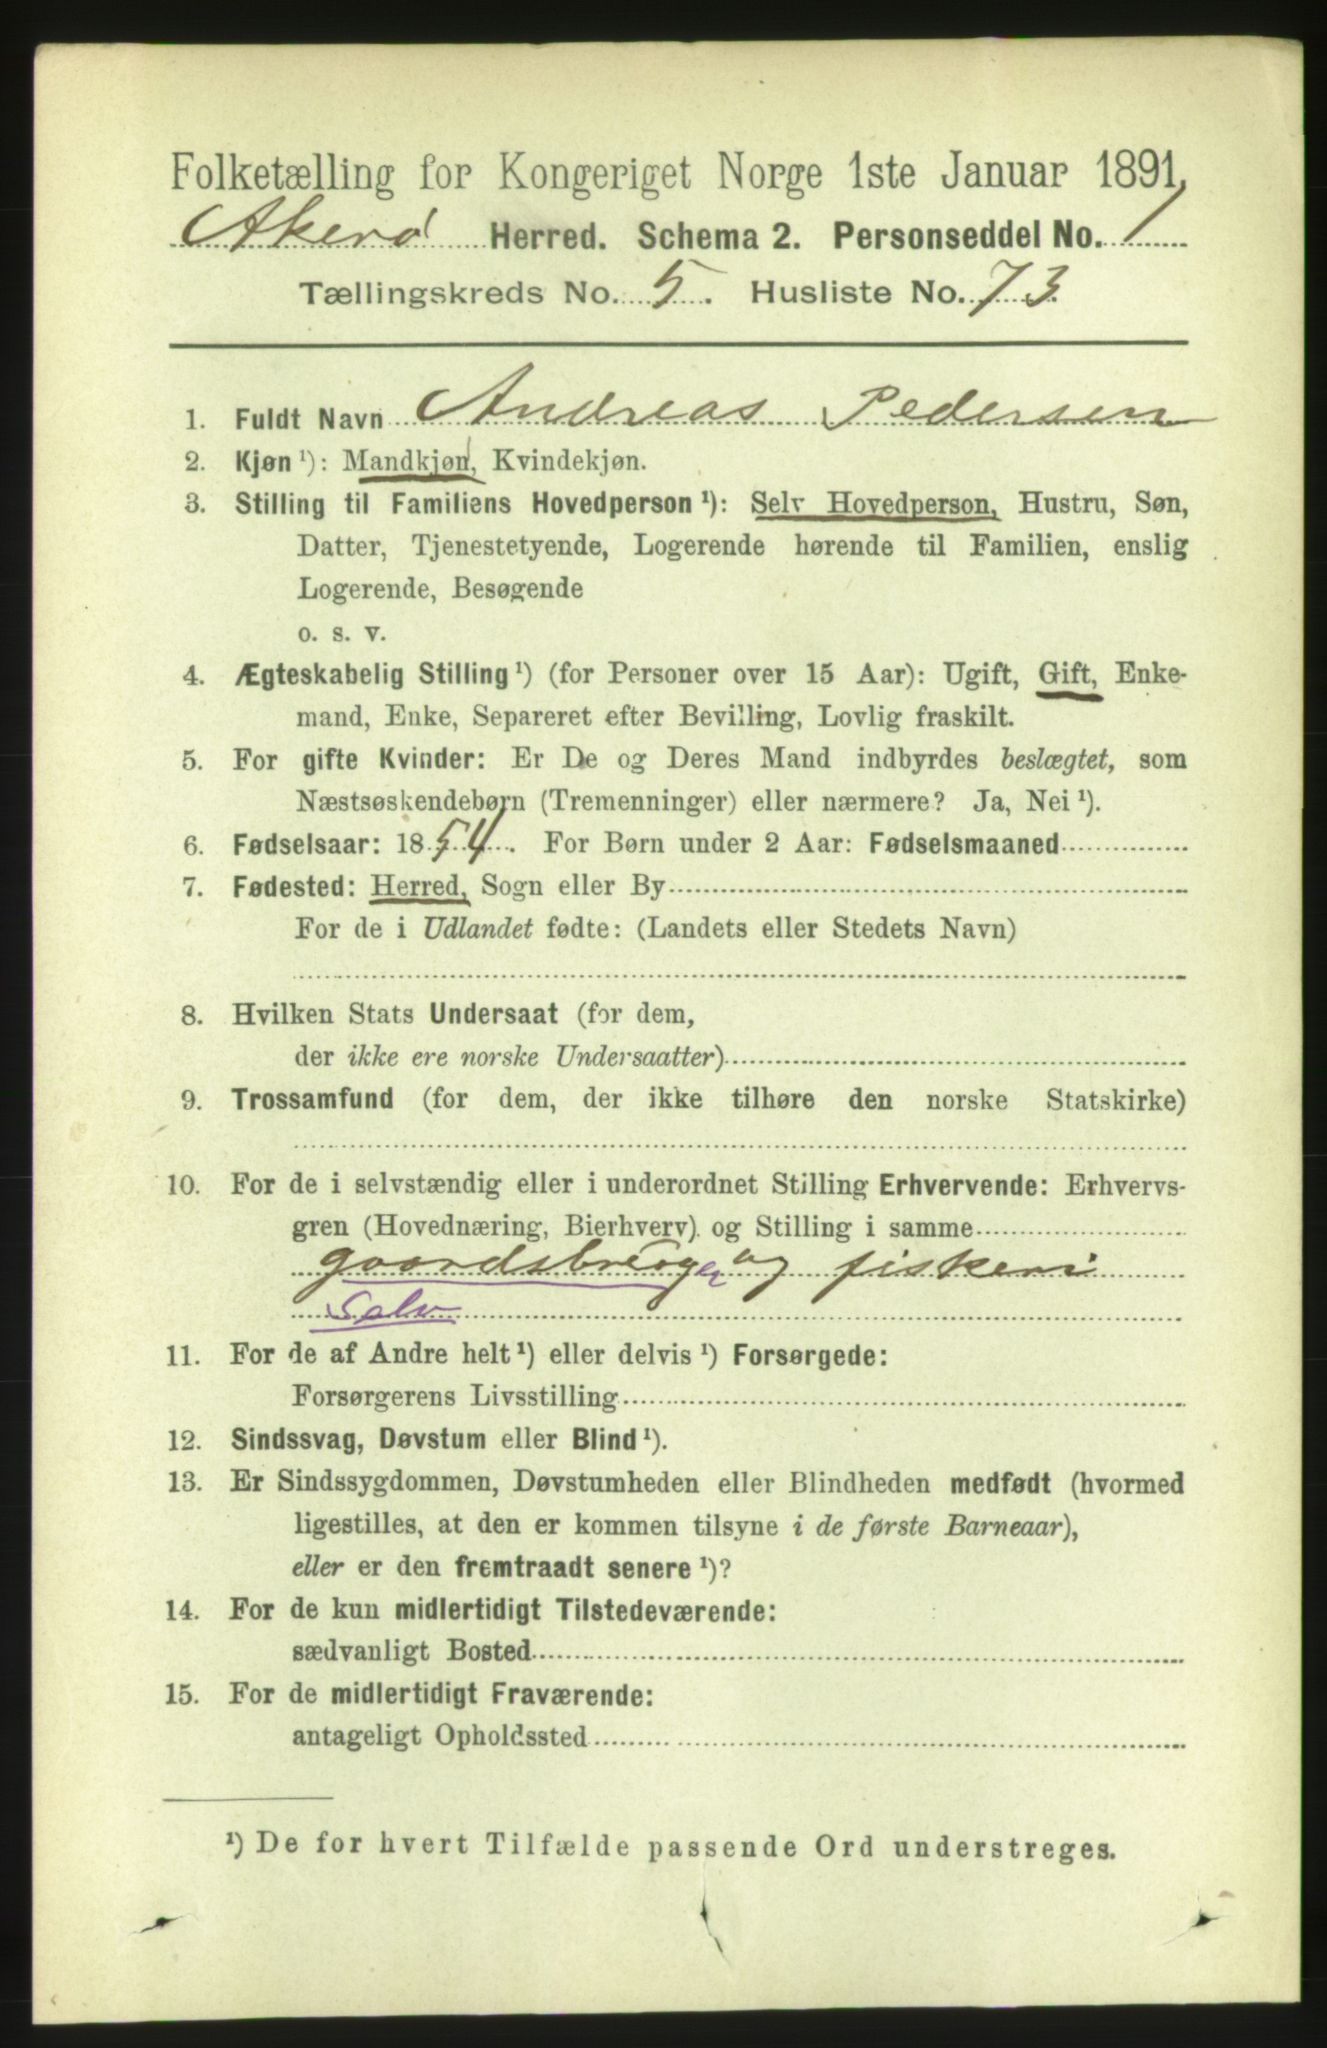 Folketælling for Kongeriget Norge 1ste Januar 1891.
Akerø Herred. Schema 2. Personseddel No. 1
Tællingskreds No. 5. Husliste No. 73.
1. Fuldt Navn Andreas Pedersen
2. Kjøn ¹): Mandkjøn, Kvindekjøn.
3. Stilling til Familiens Hovedperson ¹): Selv Hovedperson, Hustru, Søn,
Datter, Tjenestetyende, Logerende hørende til Familien, enslig
Logerende, Besøgende
o. s. v.
4. Ægteskabelig Stilling ¹) (for Personer over 15 Aar): Ugift, Gift, Enke-
mand, Enke, Separeret efter Bevilling, Lovlig fraskilt.
5. For gifte Kvinder: Er De og Deres Mand indbyrdes beslægtet, som
Næstsøskendebørn (Tremenninger) eller nærmere? Ja, Nei ¹).
6. Fødselsaar: 1854. For Børn under 2 Aar: Fødselsmaaned
7. Fødested: Herred, Sogn eller By
For de i Udlandet fødte: (Landets eller Stedets Navn)
8. Hvilken Stats Undersaat (for dem,
der ikke ere norske Undersaatter)
9. Trossamfund (for dem, der ikke tilhøre den norske Statskirke)
10. For de i selvstændig eller i underordnet Stilling Erhvervende: Erhvervs-
gren (Hovednæring, Bierhverv) og Stilling i samme
gaardsbruger og fiskeri
Selv
11. For de af Andre helt ¹) eller delvis ¹) Forsørgede:
Forsørgerens Livsstilling
12. Sindssvag, Døvstum eller Blind ¹).
13. Er Sindssygdommen, Døvstumheden eller Blindheden medfødt (hvormed
ligestilles, at den er kommen tilsyne i de første Barneaar),
eller er den fremtraadt senere ¹)?
14. For de kun midlertidigt Tilstedeværende:
sædvanligt Bosted
15. For de midlertidigt Fraværende:
antageligt Opholdssted
¹) De for hvert Tilfælde passende Ord understreges.